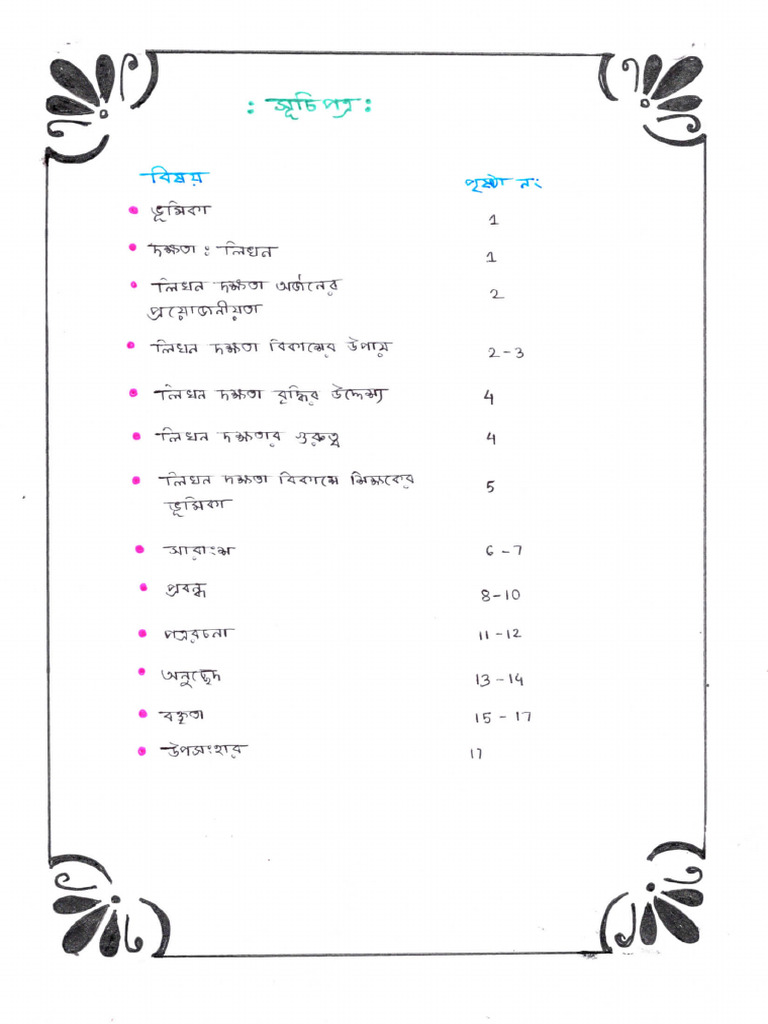 : সূচিপত্র :
বিষয় পৃষ্ঠা নং
• ভূমিকা 1
• দক্ষতা : লিখন 1
• লিখন দক্ষতা অর্জনের 2
প্রয়োজনীয়তা
• লিখন দক্ষতা বিকাশের উপায় 2-3
• লিখন দক্ষতা বৃদ্ধির উদ্দেশ্য 4
• লিখন দক্ষতার গুরুত্ব 4
• লিখন দক্ষতা বিকাশে শিক্ষকের 5
ভূমিকা
• সারাংশ 6-7
• প্রবন্ধ 8-10
• পত্ররচনা 11-12
• অনুচ্ছেদ 13-14
• বক্তৃতা 15-17
• উপসংহার 17